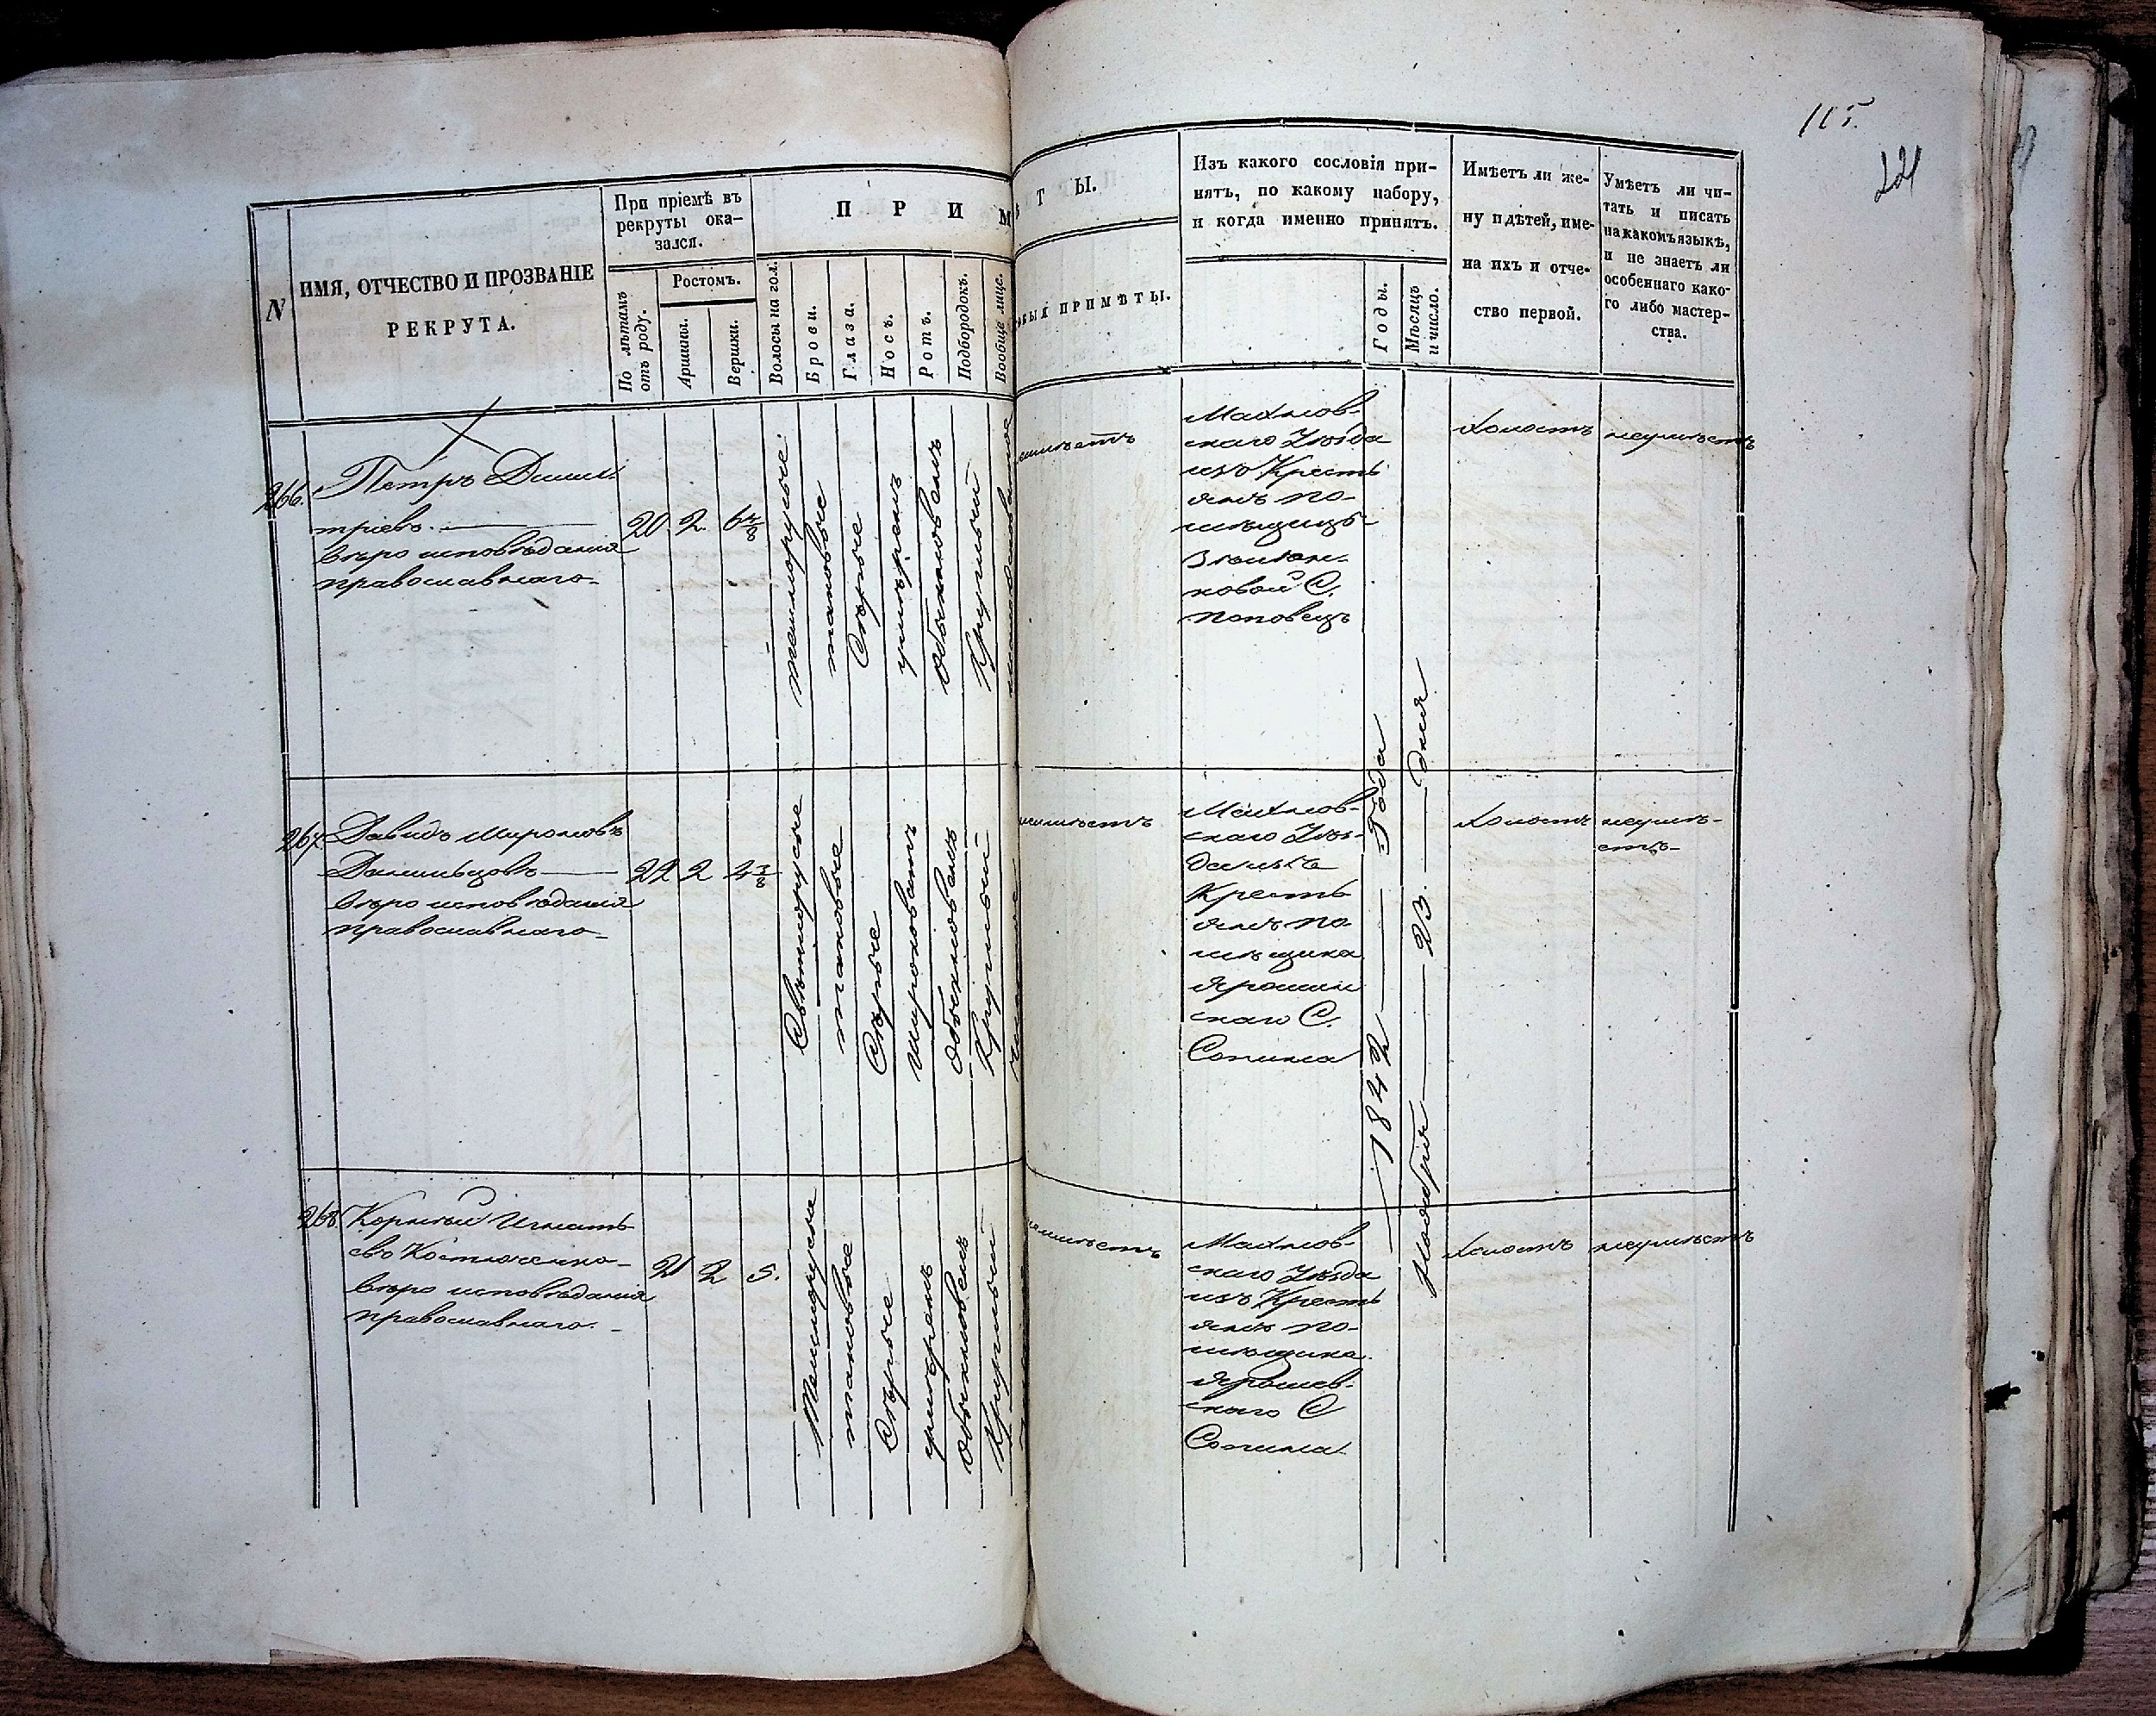 115.
221
N
ИМЯ, ОТЧЕСТВО И ПРОЗВАНІЕ
РЕКРУТА.
При пріемѣ въ
рекруты ока-
зался.
По лѣтамъ
отъ роду.
Ростомъ.
Аршины.
Вершки.
П Р И М
Волосы на гол.
Брови.
Глаза.
Носъ.
Ротъ.
Подбородокъ.
Вообще лице.
Т Ы.
ПРИМѢТЫ.
Изъ какого сословія при-
нятъ, по какому набору,
и когда именно принятъ.
Годы.
Мѣсяцъ
и число.
Имѣетъ ли же-
ну и дѣтей, име-
на ихъ и отче-
ство первой.
Умѣетъ ли чи-
тать и писать
на какомъ языкѣ,
и не знаетъ ли
особеннаго како-
го либо мастер-
ства.
266.
Петръ Дими-
тріевъ.
Вѣро исповѣданія
православнаго
20
2
6 4/8
темнорусые
таковые
Сѣрые
умѣренъ
обыкновенъ
Круглый
неимѣетъ
Махнов-
скаго Уѣзда
изъ Кресть
янъ по-
мѣщицы
ковой С.
Поповецъ
холостъ
неумѣетъ
267.
Давидъ Мироновъ
Вѣро исповѣданія
православнаго
22
2
4 7/8
Свѣтлорусые
таковые
Сѣрые
широковатъ
обыкновенъ
Круглый
неимѣетъ
Махнов-
скаго Уѣз-
да изъ
Кресть
янъ по
мѣщика
скаго С.
Сопина
1842 Года
Ноября 23. дня
холостъ
неумѣ-
етъ
268.
Корнѣй Игнать
евъ Костюченко
Вѣро исповѣданія
православнаго.
21
2
5.
Темнорусые
таковые
Сѣрые
умѣренъ
обыкновенъ
Круглый
неимѣетъ
Махнов-
скаго Уѣзда
изъ Кресть
янъ по-
мѣщика
Ярошев-
скаго С
Сопина
холостъ
неумѣетъ